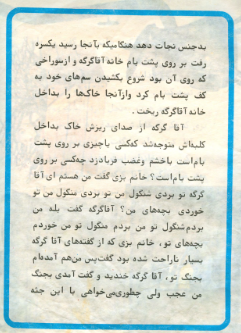 بدجنس نجات دهد هنگامیکه بآنجا رسید یکسره
رفت بر روی پشت بام خانه آقاگرگه و از سوراخی
که روی آن بود شروع بکشیدن سم‌های خود به
کف پشت بام کرد و از آنجا خاکها را بداخل
خانه آقاگرگه ریخت .
آقا گرگه از صدای ریزش خاک بداخل
کلبه‌اش متوجه‌شد که‌کسی یا چیزی بر روی پشت
بام‌است با خشم و غضب فریاد زد چه‌کسی بر روی
پشت بام‌است؟ خانم بزی گفت من هستم ای آقا
گرگه تو بردی شنگول من تو بردی منگول من تو
خوردی بچه‌های من؟ آقاگرگه گفت بله من
بردم شنگول تو من بردم منگول تو من خوردم
بچه‌های تو ، خانم بزی که از گفته‌های آقا گرگه
بسیار ناراحت شده بود گفت پس من‌هم آمده‌ام
بجنگ تو ، آقا گرگه خندید و گفت آمدی بجنگ
من عجب ولی چطوری می‌خواهی با این جثه